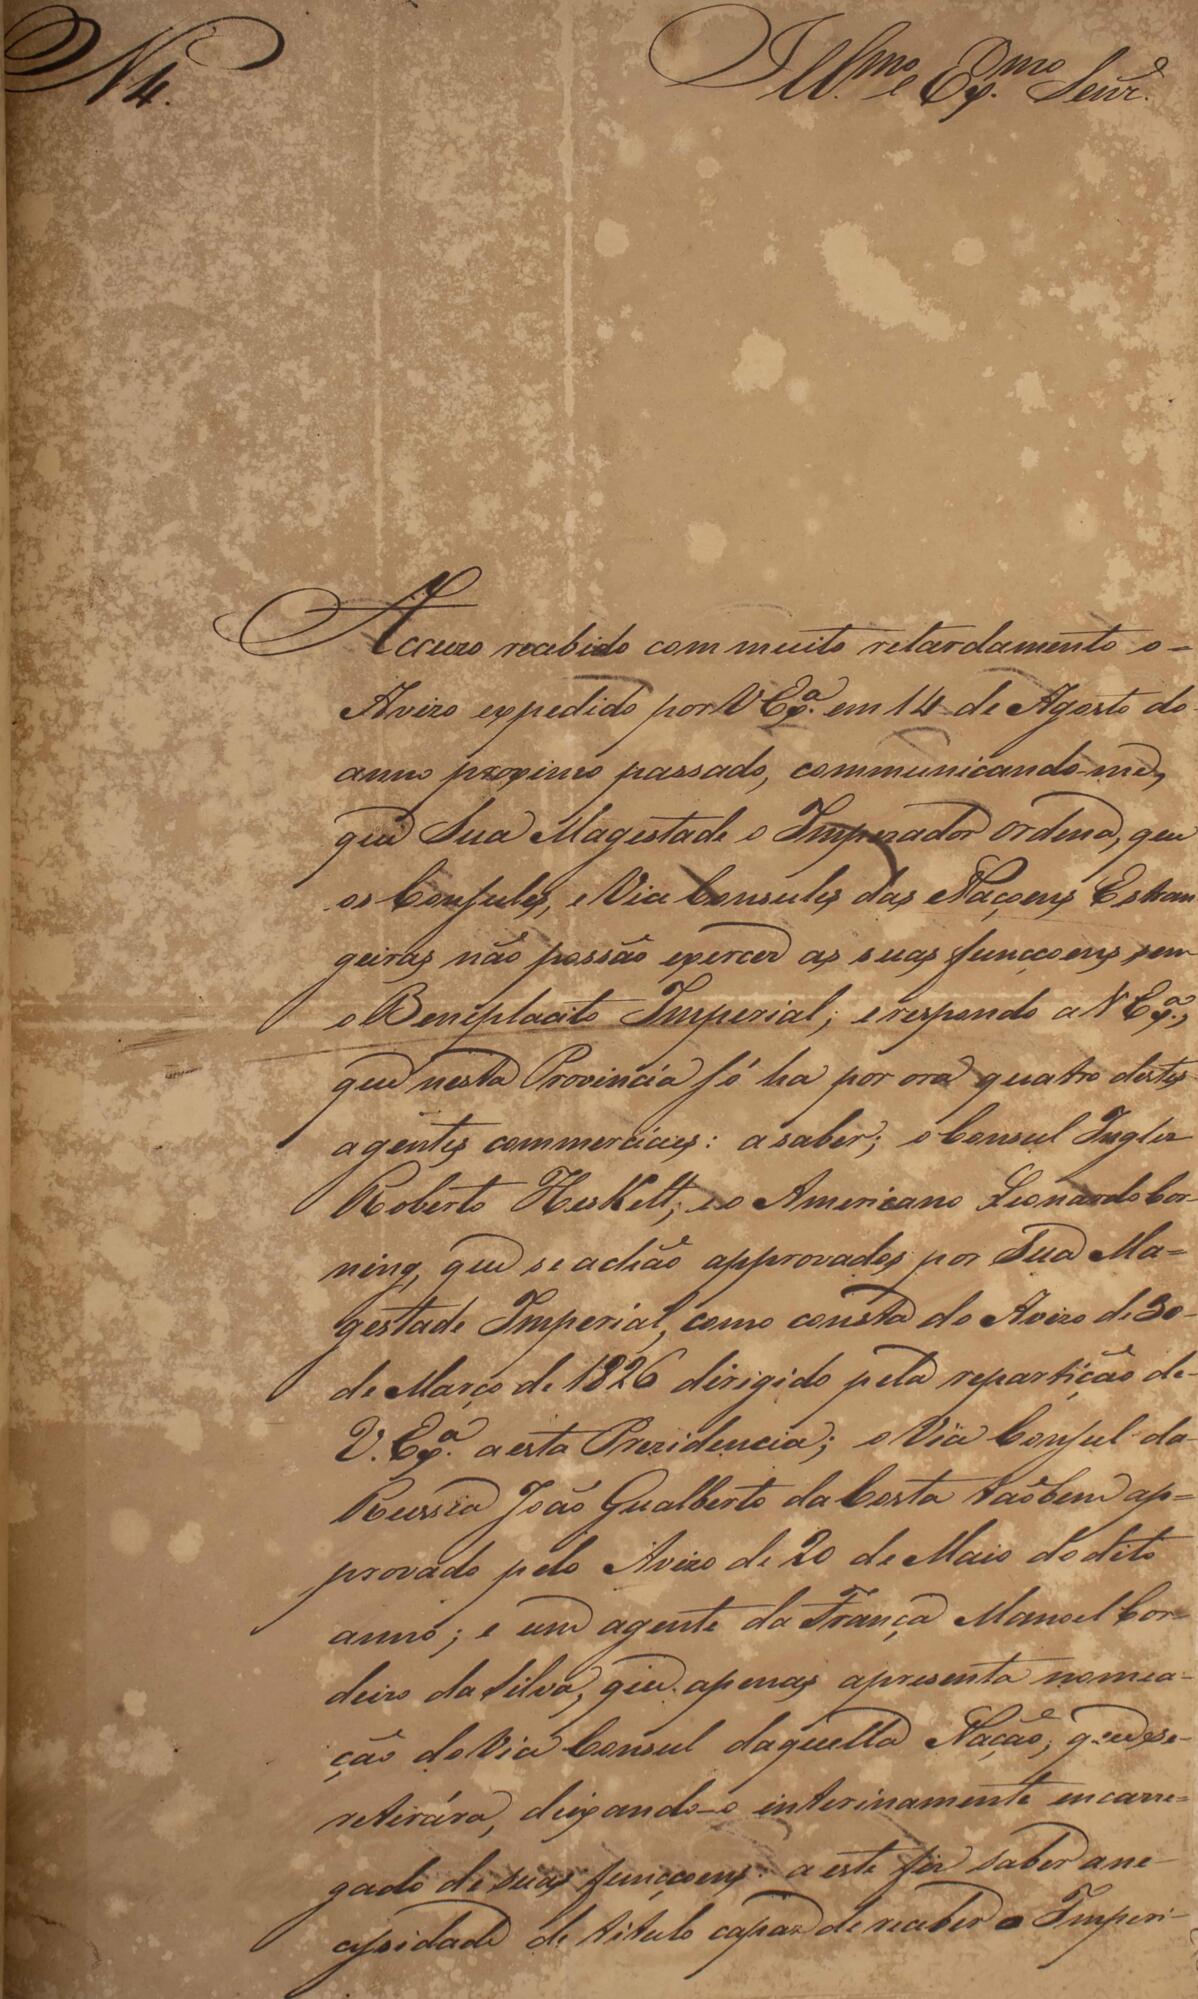 N 4.
Ill.mo e Ex.mo Senr.
Accuzo recebido com muito retardamento o
Avizo expedido por V Ex.a em 14 de Agosto do
anno proximo passado, communicando-me,
que Sua Magestade o Imperador ordena, que
os Consules, e Vice Consules das Naçoens Estran
geiras não possão exercer as suas funcçoens sem
o Beneplacito Imperial; e respondo a V Ex.a,
que nesta Provincia só ha por ora quatro destes
agentes commerciaes: a saber; o Consul Inglez
Roberto Heskett, e o Americano Leonardo Cor-
ning, que se achão approvados por Sua Ma=
gestade Imperial, como consta do Avizo de 30
de Março de 1826 dirigido pela repartição de
V. Ex.a a esta Prezidencia; o Vice Consul da
Russia João Gualberto da Costa taobem ap=
provado pelo Avizo de 20 de Maio do dito
anno; e um agente da França Manoel Cor-
deiro da Silva, que apenas apresenta nomea-
ção do Vice Consul daquella Nação, que se
retirára, deixando-o interinamente encarre=
gado de suas funcçoens: a este fiz saber a ne-
cessidade de titulo capaz de receber o Imperi-